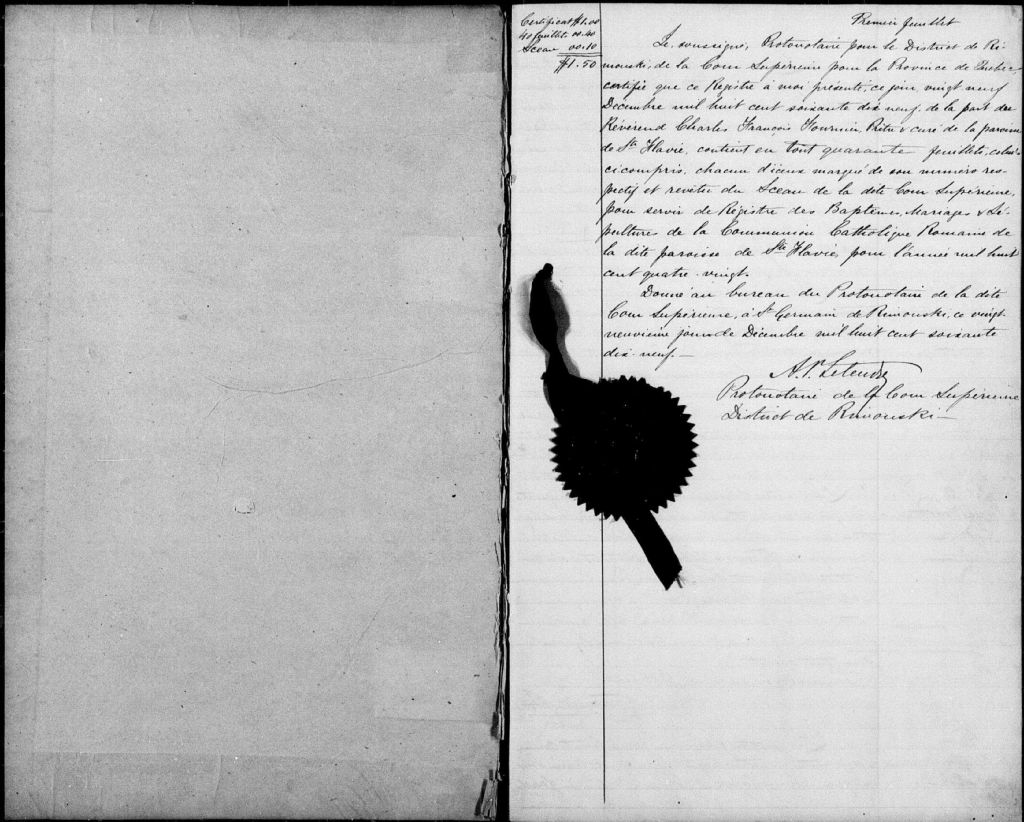 Certificat $1.00
40 feuillets 00.40
Sceau 00.10
$1.50
Premier feuillet
Le soussigné, Protonotaire pour le District de Ri-
mouski, de la Cour Supérieure pour la Province de Québec,
certifie que ce Registre à moi présenté, ce jour, vingt neuf
Décembre mil huit cent soixante dix neuf, de la part du
Révérend Charles François Fournier, Ptre & curé de la paroisse
de Ste Flavie, contient en tout quarante feuillets, celui-
ci compris, chacun d'iceux marqué de son numéro res-
pectif et revêtu du Sceau de la dite Cour Supérieure,
pour servir de Régistre des Baptêmes, Mariages & Sé-
pultures de la Communion Catholique Romaine de
la dite paroisse de Ste Flavie, pour l'année mil huit
cent quatre-vingt.
Donné au bureau du Protonotaire de la dite
Cour Supérieure, à St Germain de Rimouski, ce vingt
neuvième jour de Décembre mil huit cent soixante
dix-neuf.—
A.P. Letendre
Protonotaire de la Cour Supérieure
District de Rimouski—